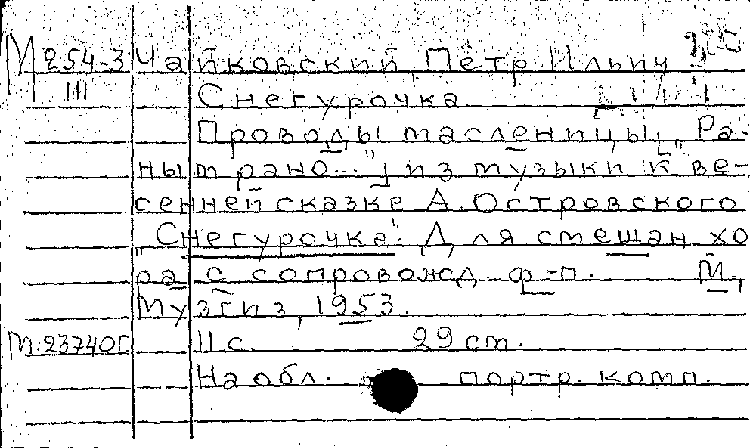 М 254-3 Чайковский, Петр Ильич
III Снегурочка
Проводы масленицы „Ра-
ным рано..." из музыки к ве-
сенней сказке А. Островского
„Снегурочка". Для смешан хо
ра с сопровожд ф-п. М.,
Музгиз, 1953.
М: 23740Г 11 с. 29 см.
На обл. портр. комп.